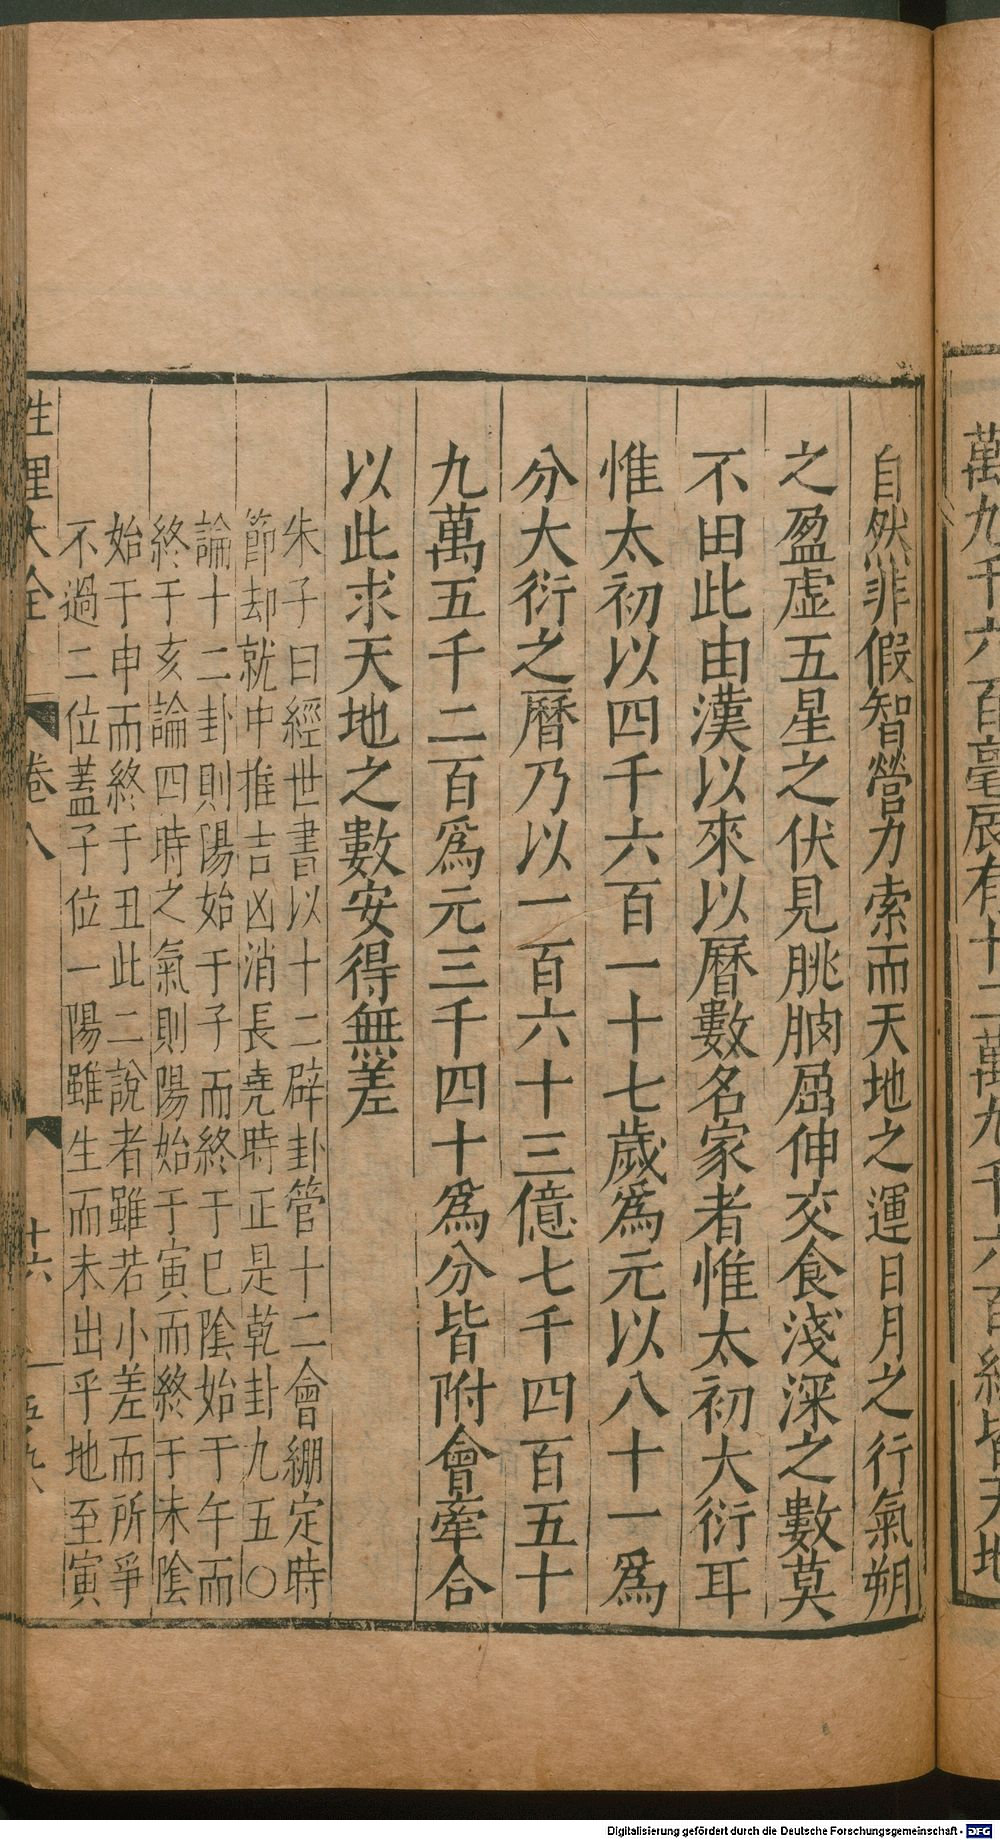 萬九千六百毫厎有十二萬九千六百絲皆天地
自然非假智營力索而天地之運日月之行氣朔
之盈虛五星之伏見朓朒屈伸交食淺深之數莫
不由此由漢以來以曆數名家者惟太初大衍耳
惟太初以四千六百一十七歲為元以八十一為
分大衍之曆乃以一百六十三億七千四百五十
九萬五千二百為元三千四十為分皆附會牽合
以此求天地之數安得無差
朱子曰經世書以十二辟卦管十二會綳定時
節却就中推吉凶消長堯時正是乾卦九五〇
論十二卦則陽始于子而終于巳陰始于午而
終于亥論四時之氣則陽始于寅而終于未陰
始于申而終于丑此二說者雖若小差而所爭
不過二位蓋子位一陽雖生而未出乎地至寅
性理大全 卷八 十六
Digitalisierung gefördert durch die Deutsche Forschungsgemeinschaft - DFG